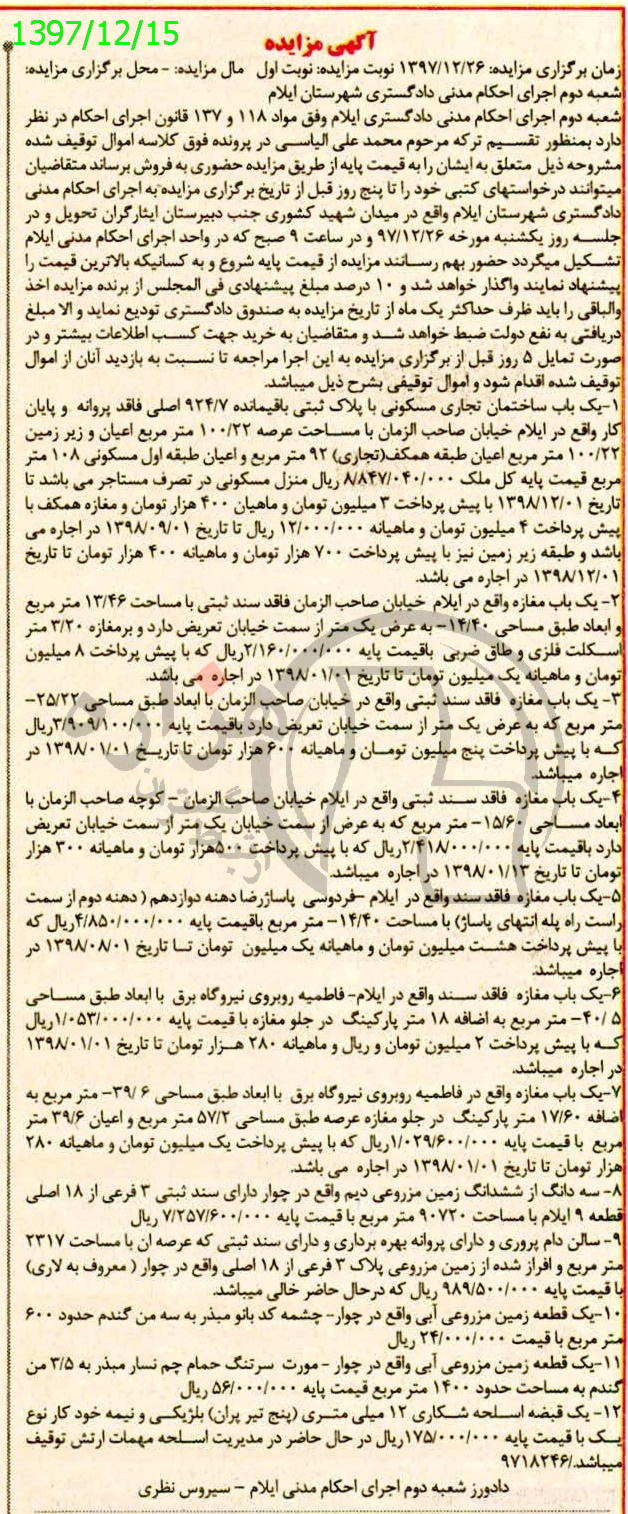 1397/12/15
آگهی مزایده
زمان برگزاری مزایده: ۱۳۹۷/۱۲/۲۶ نوبت مزایده: نوبت اول مال مزایده: - محل برگزاری مزایده:
شعبه دوم اجرای احکام مدنی دادگستری شهرستان ایلام
شعبه دوم اجرای احکام مدنی دادگستری ایلام وفق مواد ۱۱۸ و ۱۳۷ قانون اجرای احکام در نظر
دارد بمنظور تقسیم ترکه مرحوم محمد علی الیاسی در پرونده فوق کلاسه اموال توقیف شده
مشروحه ذیل متعلق به ایشان را به قیمت پایه از طریق مزایده حضوری به فروش برساند متقاضیان
میتوانند درخواستهای کتبی خود را تا پنج روز قبل از تاریخ برگزاری مزایده به اجرای احکام مدنی
دادگستری شهرستان ایلام واقع در میدان شهید کشوری جنب دبیرستان ایثارگران تحویل و در
جلسه روز یکشنبه مورخه ۹۷/۱۲/۲۶ و در ساعت ۹ صبح که در واحد اجرای احکام مدنی ایلام
تشکیل میگردد حضور بهم رسانند مزایده از قیمت پایه شروع و به کسانیکه بالاترین قیمت را
پیشنهاد نمایند واگذار خواهد شد و ۱۰ درصد مبلغ پیشنهادی فی المجلس از برنده مزایده اخذ
والباقی را باید ظرف حداکثر یک ماه از تاریخ مزایده به صندوق دادگستری تودیع نماید و الا مبلغ
دریافتی به نفع دولت ضبط خواهد شد و متقاضیان به خرید جهت کسب اطلاعات بیشتر و در
صورت تمایل ۵ روز قبل از برگزاری مزایده به این اجرا مراجعه تا نسبت به بازدید آنان از اموال
توقیف شده اقدام شود و اموال توقیفی بشرح ذیل میباشد.
۱-یک باب ساختمان تجاری مسکونی با پلاک ثبتی باقیمانده ۹۲۴/۷ اصلی فاقد پروانه و پایان
کار واقع در ایلام خیابان صاحب الزمان با مساحت عرصه ۱۰۰/۲۲ متر مربع اعیان و زیر زمین
۱۰۰/۲۲ متر مربع اعیان طبقه همکف(تجاری) ۹۲ متر مربع و اعیان طبقه اول مسکونی ۱۰۸ متر
مربع قیمت پایه کل ملک ۸/۸۴۷/۰۴۰/۰۰۰ ریال منزل مسکونی در تصرف مستاجر می باشد تا
تاریخ ۱۳۹۸/۱۲/۰۱ با پیش پرداخت ۳ میلیون تومان و ماهیان ۴۰۰ هزار تومان و مغازه همکف با
پیش پرداخت ۴ میلیون تومان و ماهیانه ۱۲/۰۰۰/۰۰۰ ریال تا تاریخ ۱۳۹۸/۰۹/۰۱ در اجاره می
باشد و طبقه زیر زمین نیز با پیش پرداخت ۷۰۰ هزار تومان و ماهیانه ۴۰۰ هزار تومان تا تاریخ
۱۳۹۸/۱۲/۰۱ در اجاره می باشد.
۲- یک باب مغازه واقع در ایلام خیابان صاحب الزمان فاقد سند ثبتی با مساحت ۱۳/۴۶ متر مربع
و ابعاد طبق مساحی ۱۴/۴۰- به عرض یک متر از سمت خیابان تعریض دارد و برمغازه ۳/۲۰ متر
اسکلت فلزی و طاق ضربی باقیمت پایه ۲/۱۶۰/۰۰۰/۰۰۰ریال که با پیش پرداخت ۸ میلیون
تومان و ماهیانه یک میلیون تومان تا تاریخ ۱۳۹۸/۰۱/۰۱ در اجاره می باشد.
۳- یک باب مغازه فاقد سند ثبتی واقع در خیابان صاحب الزمان با ابعاد طبق مساحی ۲۵/۲۲-
متر مربع که به عرض یک متر از سمت خیابان تعریض دارد باقیمت پایه ۳/۹۰۹/۱۰۰/۰۰۰ریال
که با پیش پرداخت پنج میلیون تومان و ماهیانه ۶۰۰ هزار تومان تا تاریخ ۱۳۹۸/۰۱/۰۱ در
اجاره میباشد.
۴-یک باب مغازه فاقد سند ثبتی واقع در ایلام خیابان صاحب الزمان – کوچه صاحب الزمان با
ابعاد مساحی ۱۵/۶۰- متر مربع که به عرض از سمت خیابان یک متر از سمت خیابان تعریض
دارد باقیمت پایه ۲/۴۱۸/۰۰۰/۰۰۰ریال که با پیش پرداخت ۵۰۰هزار تومان و ماهیانه ۳۰۰ هزار
تومان تا تاریخ ۱۳۹۸/۰۱/۱۳ در اجاره میباشد.
۵-یک باب مغازه فاقد سند واقع در ایلام –فردوسی پاساژرضا دهنه دوازدهم ( دهنه دوم از سمت
راست راه پله انتهای پاساژ) با مساحت ۱۴/۴۰- متر مربع باقیمت پایه ۴/۸۵۰/۰۰۰/۰۰۰ریال که
با پیش پرداخت هشت میلیون تومان و ماهیانه یک میلیون تومان تا تاریخ ۱۳۹۸/۰۸/۰۱ در
اجاره میباشد.
۶-یک باب مغازه فاقد سند واقع در ایلام- فاطمیه روبروی نیروگاه برق با ابعاد طبق مساحی
۴۰/۵- متر مربع به اضافه ۱۸ متر پارکینگ در جلو مغازه با قیمت پایه ۱/۰۵۳/۰۰۰/۰۰۰ریال
که با پیش پرداخت ۲ میلیون تومان و ریال و ماهیانه ۲۸۰ هزار تومان تا تاریخ ۱۳۹۸/۰۱/۰۱
در اجاره میباشد.
۷-یک باب مغازه واقع در فاطمیه روبروی نیروگاه برق با ابعاد طبق مساحی ۳۹/۶- متر مربع به
اضافه ۱۷/۶۰ متر پارکینگ در جلو مغازه عرصه طبق مساحی ۵۷/۲ متر مربع و اعیان ۳۹/۶ متر
مربع با قیمت پایه ۱/۰۲۹/۶۰۰/۰۰۰ریال که با پیش پرداخت یک میلیون تومان و ماهیانه ۲۸۰
هزار تومان تا تاریخ ۱۳۹۸/۰۱/۰۱ در اجاره می باشد.
۸- سه دانگ از ششدانگ زمین مزروعی دیم واقع در چوار دارای سند ثبتی ۳ فرعی از ۱۸ اصلی
قطعه ۹ ایلام با مساحت ۹۰۷۲۰ متر مربع با قیمت پایه ۷/۲۵۷/۶۰۰/۰۰۰ ریال
۹- سالن دام پروری و دارای پروانه بهره برداری و دارای سند ثبتی که عرصه ان با مساحت ۲۳۱۷
متر مربع و افراز شده از زمین مزروعی پلاک ۳ فرعی از ۱۸ اصلی واقع در چوار ( معروف به لاری)
با قیمت پایه ۹۸۹/۵۰۰/۰۰۰ ریال که درحال حاضر خالی میباشد.
۱۰-یک قطعه زمین مزروعی آبی واقع در چوار- چشمه کد بانو مبذر به سه من گندم حدود ۶۰۰
متر مربع با قیمت ۲۴/۰۰۰/۰۰۰ ریال
۱۱-یک قطعه زمین مزروعی آبی واقع در چوار – مورت سرتنگ حمام چم نسار مبذر به ۳/۵ من
گندم به مساحت حدود ۱۴۰۰ متر مربع قیمت پایه ۵۶/۰۰۰/۰۰۰ ریال
۱۲- یک قبضه اسلحه شکاری ۱۲ میلی متری (پنج تیر پران) بلژیکی و نیمه خود کار نوع
یک با قیمت پایه ۱۷۵/۰۰۰/۰۰۰ریال در حال حاضر در مدیریت اسلحه مهمات ارتش توقیف
میباشد./۹۷۱۸۲۴۶
دادورز شعبه دوم اجرای احکام مدنی ایلام – سیروس نظری